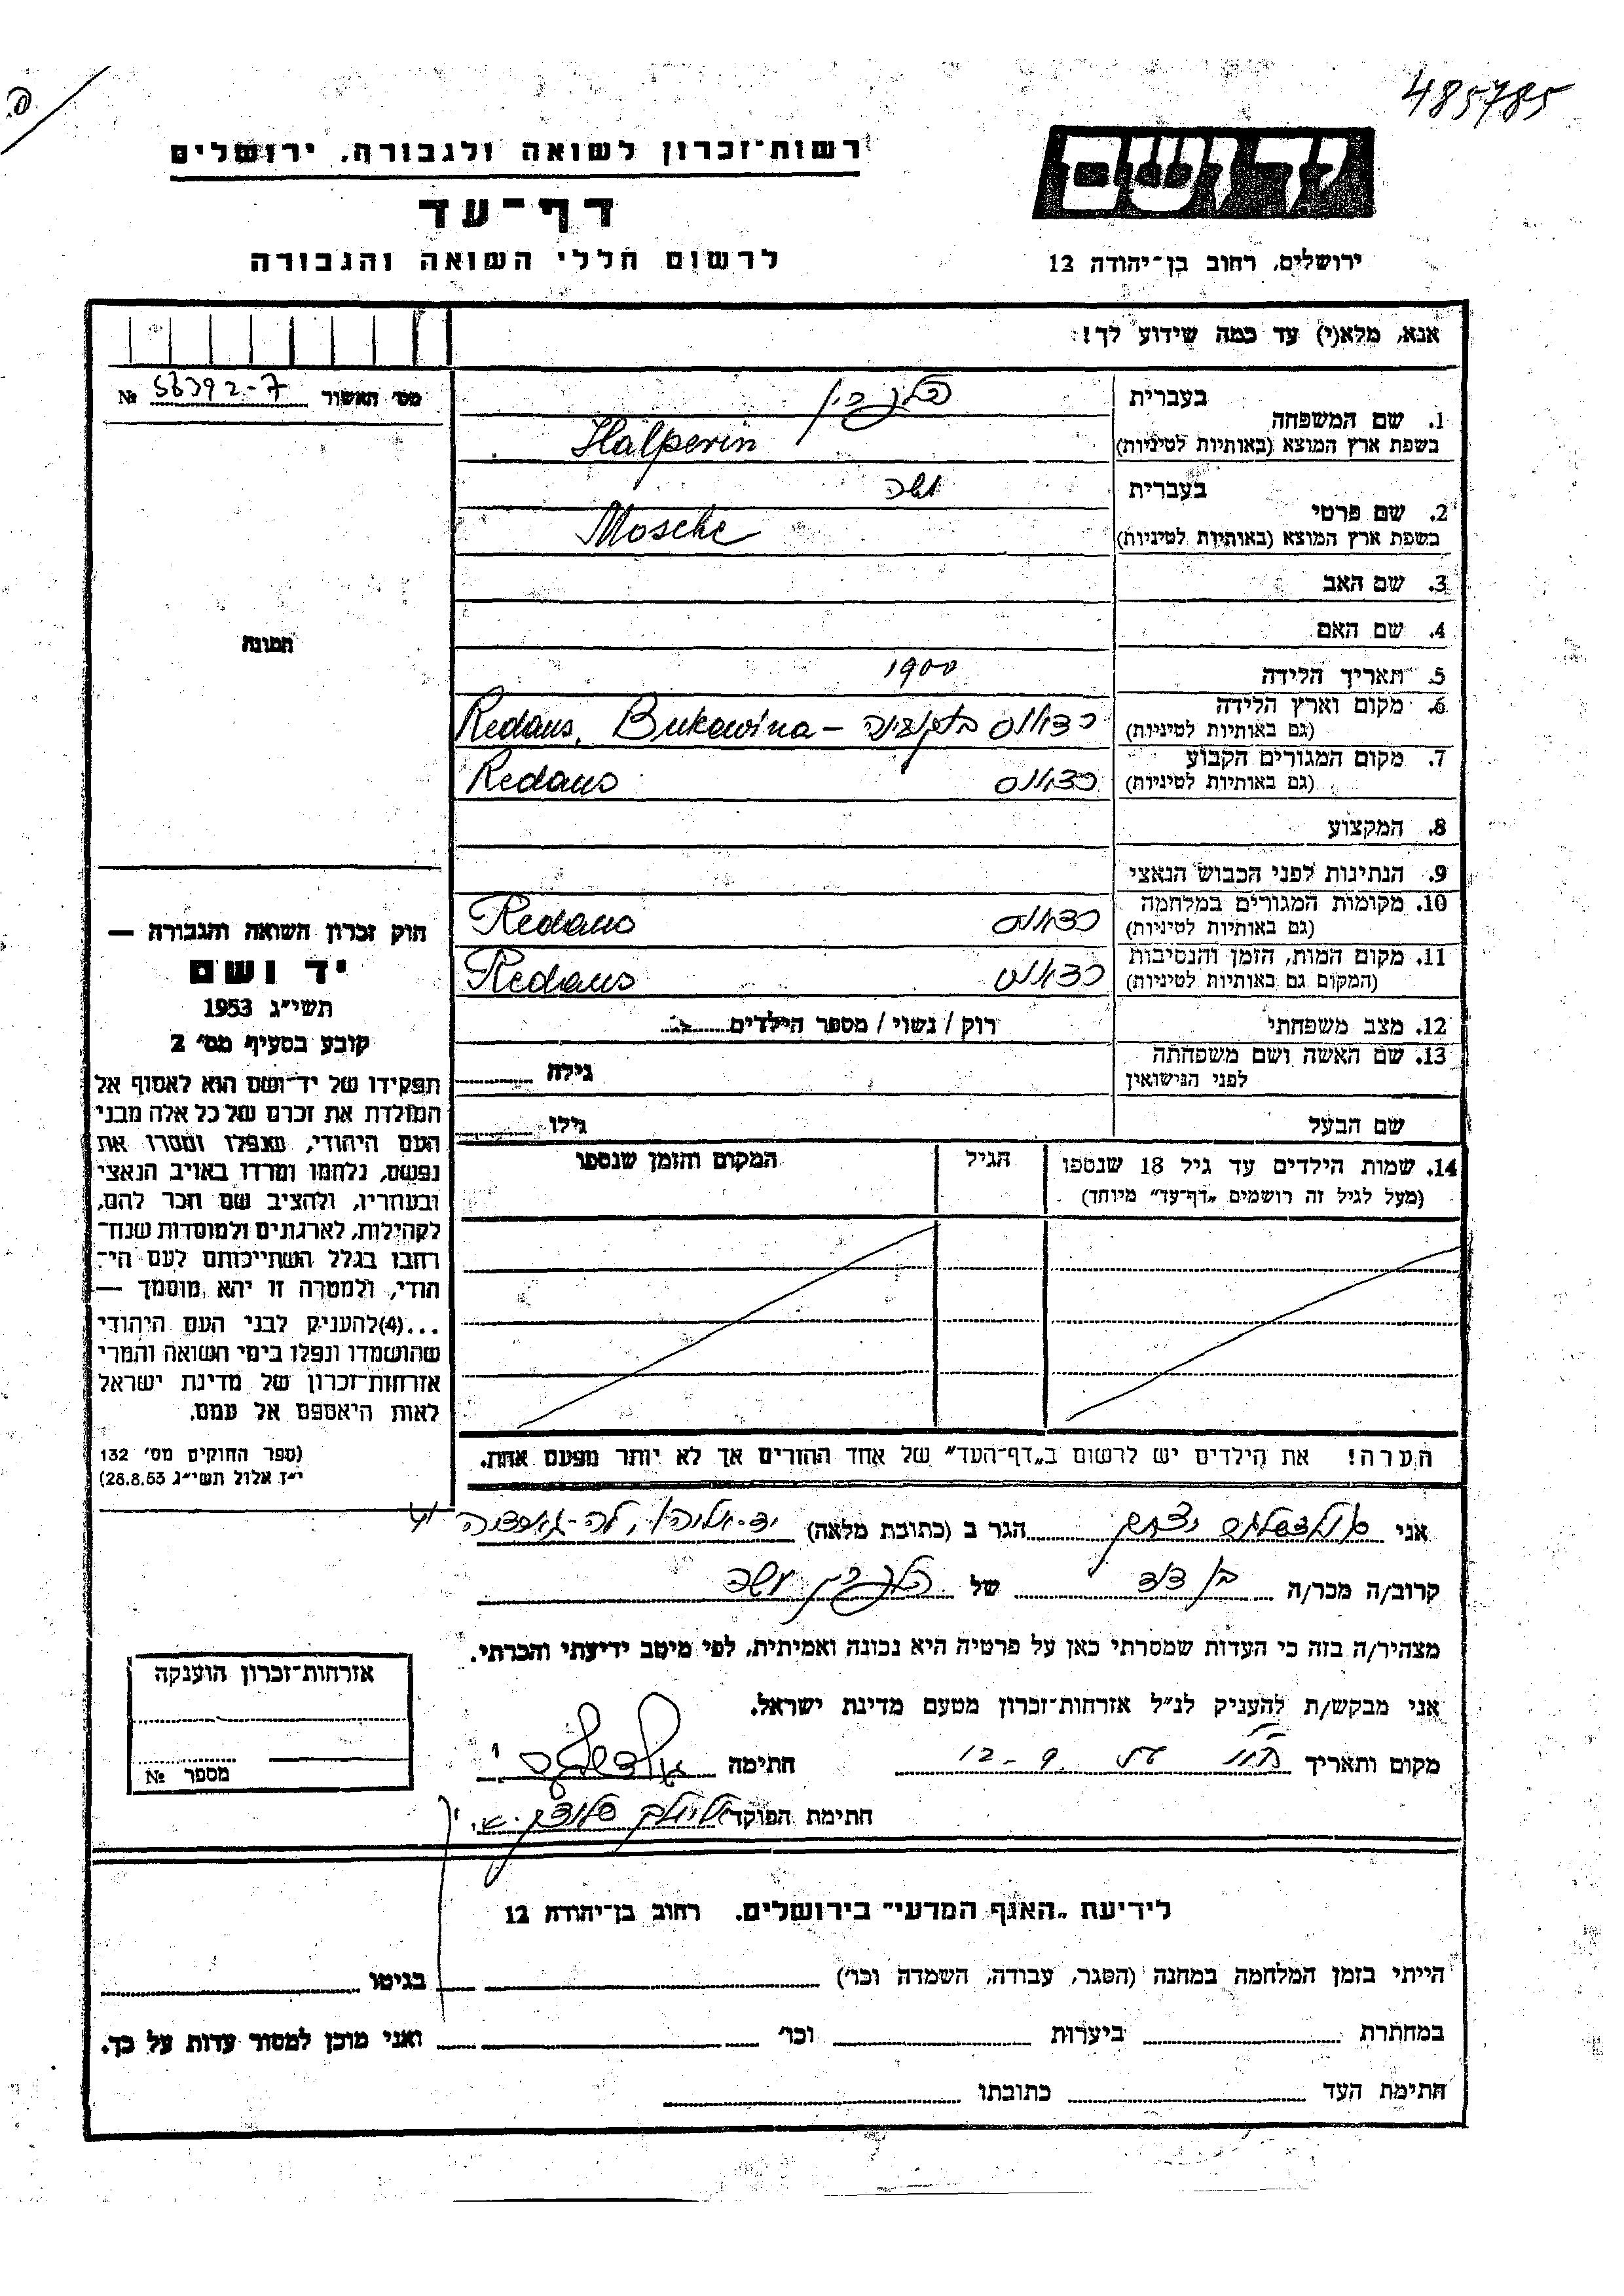 485785
רשות־זכרון לשואה ולגבורה, ירושלים
יד ושם
דף־עד
לרשום חללי השואה והגבורה
ירושלים, רחוב בן־יהודה 12
אנא, מלא(י) עד כמה שידוע לך!
מס׳ האשור № 56392-7
בעברית הלפרין
1. שם המשפחה
בשפת ארץ המוצא (באותיות לטיניות) Halperin
בעברית משה
2. שם פרטי
בשפת ארץ המוצא (באותיות לטיניות) Mosche
3. שם האב
4. שם האם
תמונה
5. תאריך הלידה 1900
6. מקום וארץ הלידה
(גם באותיות לטיניות) רדאוס בוקובינה – Redaus, Bukowina
7. מקום המגורים הקבוע
(גם באותיות לטיניות) רדאוס Redaus
8. המקצוע
9. הנתינות לפני הכבוש הנאצי
10. מקומות המגורים במלחמה
(גם באותיות לטיניות) רדאוס Redaus
11. מקום המות, הזמן והנסיבות
(המקום גם באותיות לטיניות) רדאוס Redaus
12. מצב משפחתי רוק / נשוי / מספר הילדים
13. שם האשה ושם משפחתה
לפני הנישואין גילה
שם הבעל גילו
14. שמות הילדים עד גיל 18 שנספו הגיל המקום והזמן שנספו
(מעל לגיל זה רושמים „דף־עד” מיוחד)
הערה! את הילדים יש לרשום ב„דף־העד” של אחד ההורים אך לא יותר מפעם אחת.
חוק זכרון השואה והגבורה —
יד ושם
תשי״ג 1953
קובע בסעיף מס׳ 2
תפקידו של יד־ושם הוא לאסוף אל
המולדת את זכרם של כל אלה מבני
העם היהודי, שנפלו ומסרו את
נפשם, נלחמו ומרדו באויב הנאצי
ובעוזריו, ולהציב שם וזכר להם,
לקהילות, לארגונים ולמוסדות שנח־
רבו בגלל השתייכותם לעם הי־
הודי, ולמטרה זו יהא מוסמך —
...(4)להעניק לבני העם היהודי
שהושמדו ונפלו בימי השואה והמרי
אזרחות־זכרון של מדינת ישראל
לאות היאספם אל עמם.
(ספר החוקים מס׳ 132
י״ז אלול תשי״ג 28.8.53)
אני יצחק הגר ב (כתובת מלאה) יד-אליהו,
קרוב/ה מכר/ה בן דוד של הלפרין משה
מצהיר/ה בזה כי העדות שמסרתי כאן על פרטיה היא נכונה ואמיתית, לפי מיטב ידיעתי והכרתי.
אני מבקש/ת להעניק לנ״ל אזרחות־זכרון מטעם מדינת ישראל.
מקום ותאריך 12-9 חתימה
חתימת הפוקד
אזרחות־זכרון הוענקה
מספר №
לידיעת „האגף המדעי” בירושלים. רחוב בן־יהודה 12
הייתי בזמן המלחמה במחנה (הסגר, עבודה, השמדה וכו׳) בגיטו
במחתרת ביערות וכו׳ ואני מוכן למסור עדות על כך.
חתימת העד כתובתו